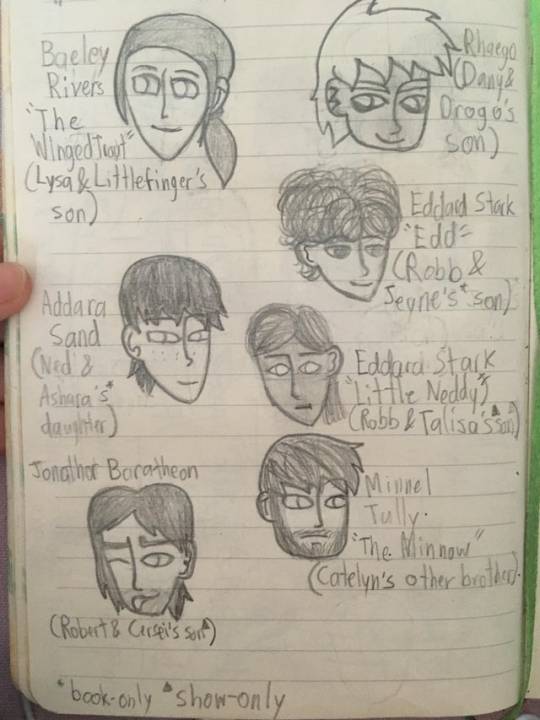 Baeley
Rivers
"The
Winged Trout"
(Lysa & Littlefinger's
son)
Rhaego
(Dany &
Drogo's
son)
Eddard Stark
"Edd"
(Robb &
Jeyne's* son)
Addara
Sand
(Ned &
Ashara's*
daughter)
Eddard Stark
"Little Neddy"
(Robb & Talisa's▲ son)
Jonothor Baratheon
(Robert & Cersei's son▲)
Minnel
Tully.
"The Minnow"
(Catelyn's other brother).
*book-only ▲show-only